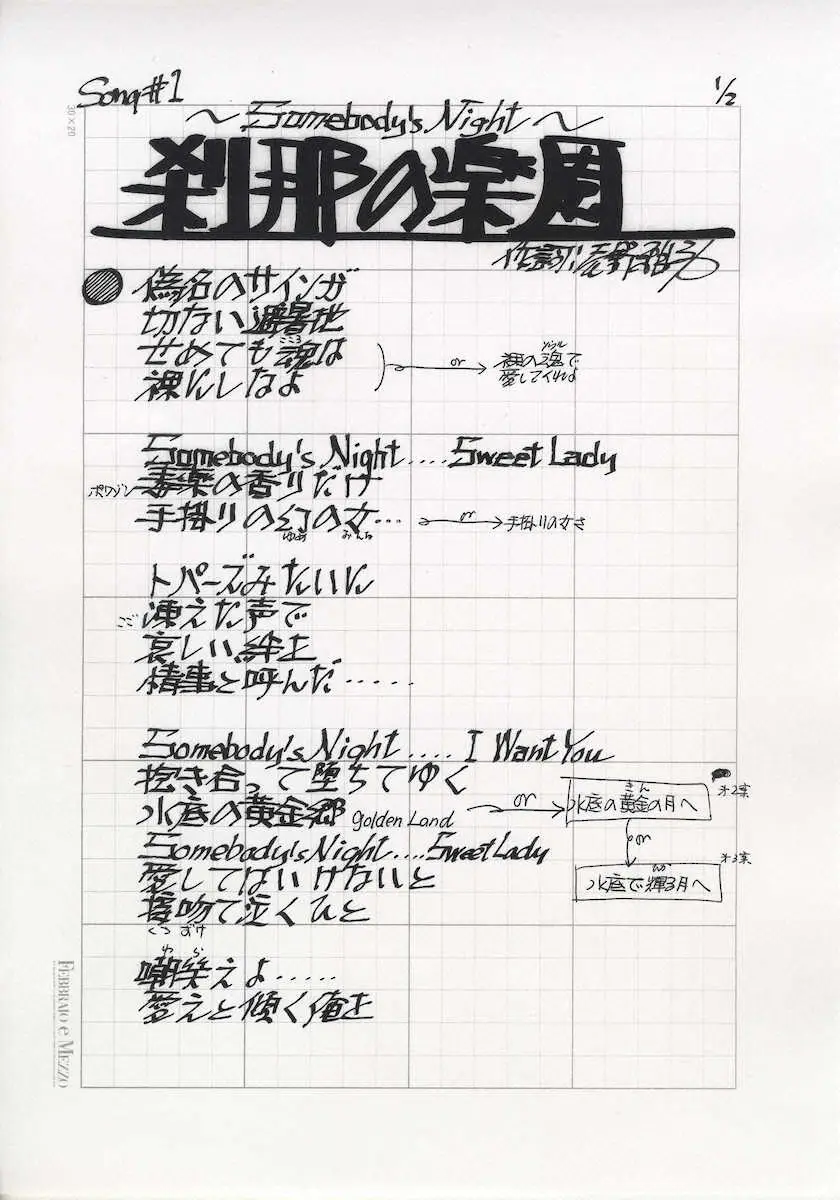 Song#1
1/2
30×20
～Somebody's Night～
刹那の楽園
作詞:
偽名のサインが
切ない避暑地
せめても魂は
こころ
裸にしなよ
or
裸の魂で
ソウル
愛してくれよ
Somebody's Night....Sweet Lady
ポワゾン
毒薬の香りだけ
手掛りの幻の女…
ゆめ
or
手掛りの女さ
トパーズみたいに
こご
凍えた声で
哀しい絆を
情事と呼んだ……
Somebody's Night..... I Want You
抱き合って堕ちてゆく
水底の黄金郷 golden Land
or
水底の黄金の月へ
きん
才2案
or
水底で輝る月へ
才3案
Somebody's Night....Sweet Lady
愛してはいけないと
接吻て泣くひと
くちづけ
わら
嘲笑えよ……
愛えと傾く俺を
FEBBRAIO e MEZZO